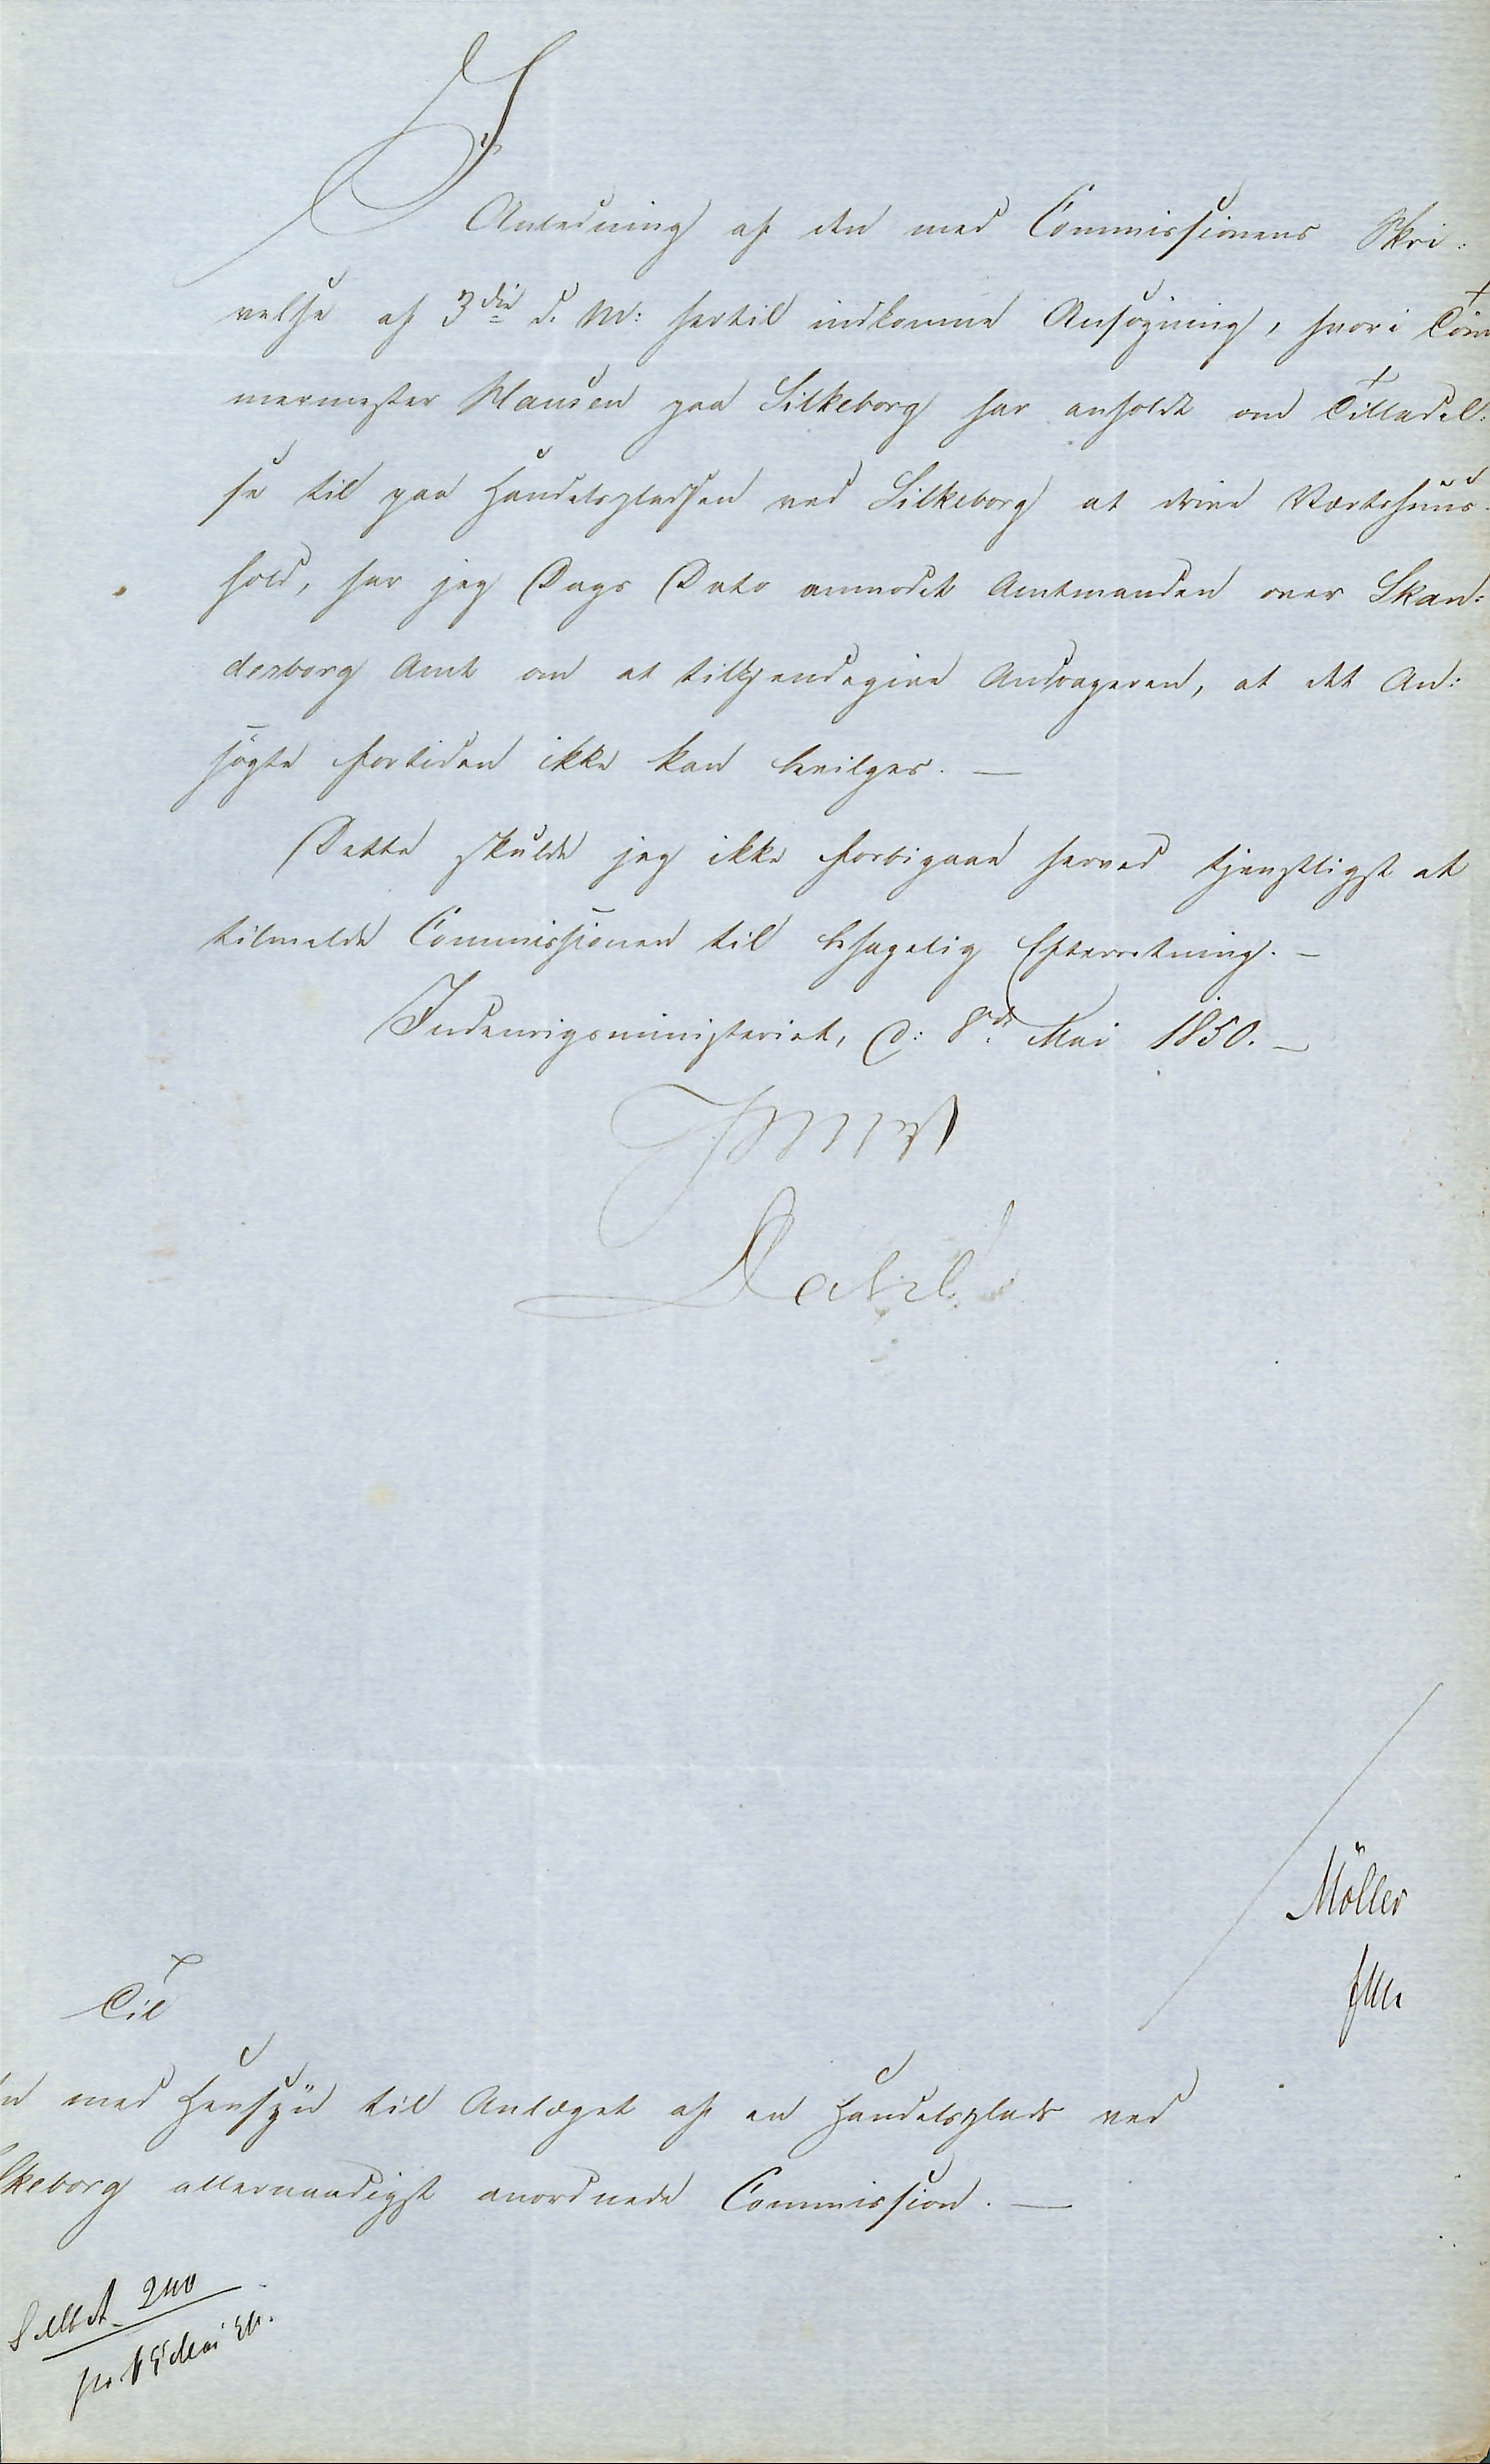 I
Anledning af den med Commissionens Skri:
velse af 3die d. M: hertil indkomne Ansøgning, hvori Töm
mermester Hansen paa Silkeborg har anholdt om Tilladel:
se til paa Handelspladsen ved Silkeborg at drive Værtshuus:
hold, har jeg Dags Dato anmodet Amtmanden over Skan:
derborg Amt om at tilkjendegive Andrageren, at det An:
søgte fortiden ikke kan bevilges. —
Dette skulde jeg ikke forbigaae herved tjenstligst at
tilmelde Commissionen til behagelig Efterretning. —
Indenrigsministeriet, d: 8de Mai 1850. —
Dahl
Möller
Til
n med Hensyn til Anlæget af en Handelsplads ved
lkeborg allernaadigst anordnede Commission. —